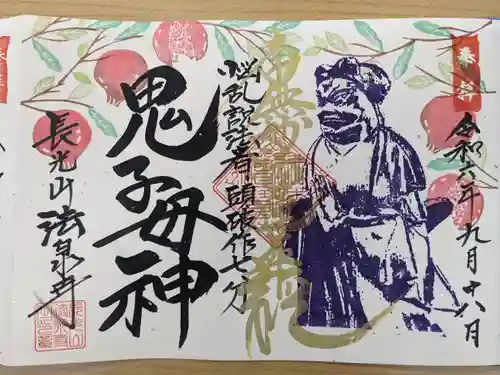 奉拝
令和六年九月十八日
悩乱説法者頭破作七分
鬼子母神
長光山 法泉寺